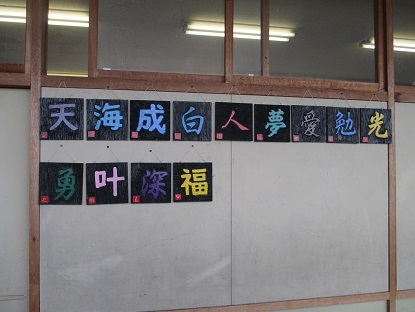 天海成白人夢愛勉光
勇叶深福